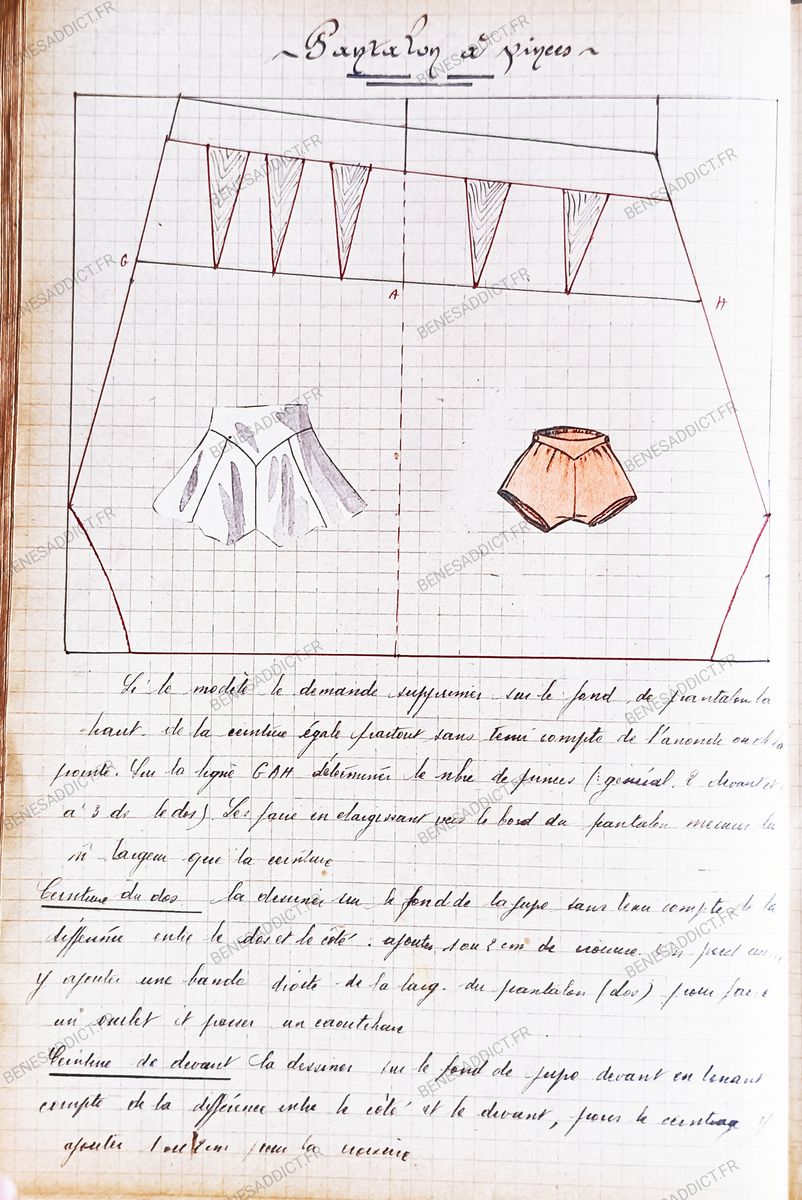 ~ Pantalon à pinces ~
G
A
H
Si le modèle le demande supprimer sur le fond de pantalon la
haut. de la ceinture égale partout sans tenir compte de l'arrondi ou de la
pointe. Sur la ligne GAH déterminer le nbre de pinces (: général. 2 devant et
à 3 ds le dos) Les faire en élargissant vers le bord du pantalon mesurer la
m̂ largeur que la ceinture
Ceinture du dos la dessiner sur le fond de la jupe sans tenu compte de la
différence entre le dos et le côté : ajouter 1 ou 2 cm de On peut aussi
y ajouter une bande droite de la larg. du pantalon (dos) pour faire
un ourlet et passer un caoutchouc
Ceinture de devant la dessiner sur le fond de jupe devant en tenant
compte de la différence entre le côté et le devant, pour le y
ajouter 1 ou 2 cm pour la
BENESADDICT.FR